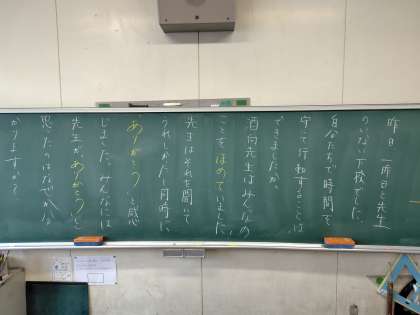 昨日、一昨日と先生
のいない下校でした。
自分たちで時間を
守って行動することは、
できましたか。
酒向先生はみんなの
ことをほめていました。
先生はそれを聞いて
うれしかったと同時に、
ありがとうと感
じました。みんなには
先生がありがとうと
思ったのはなぜかな
かりますか？